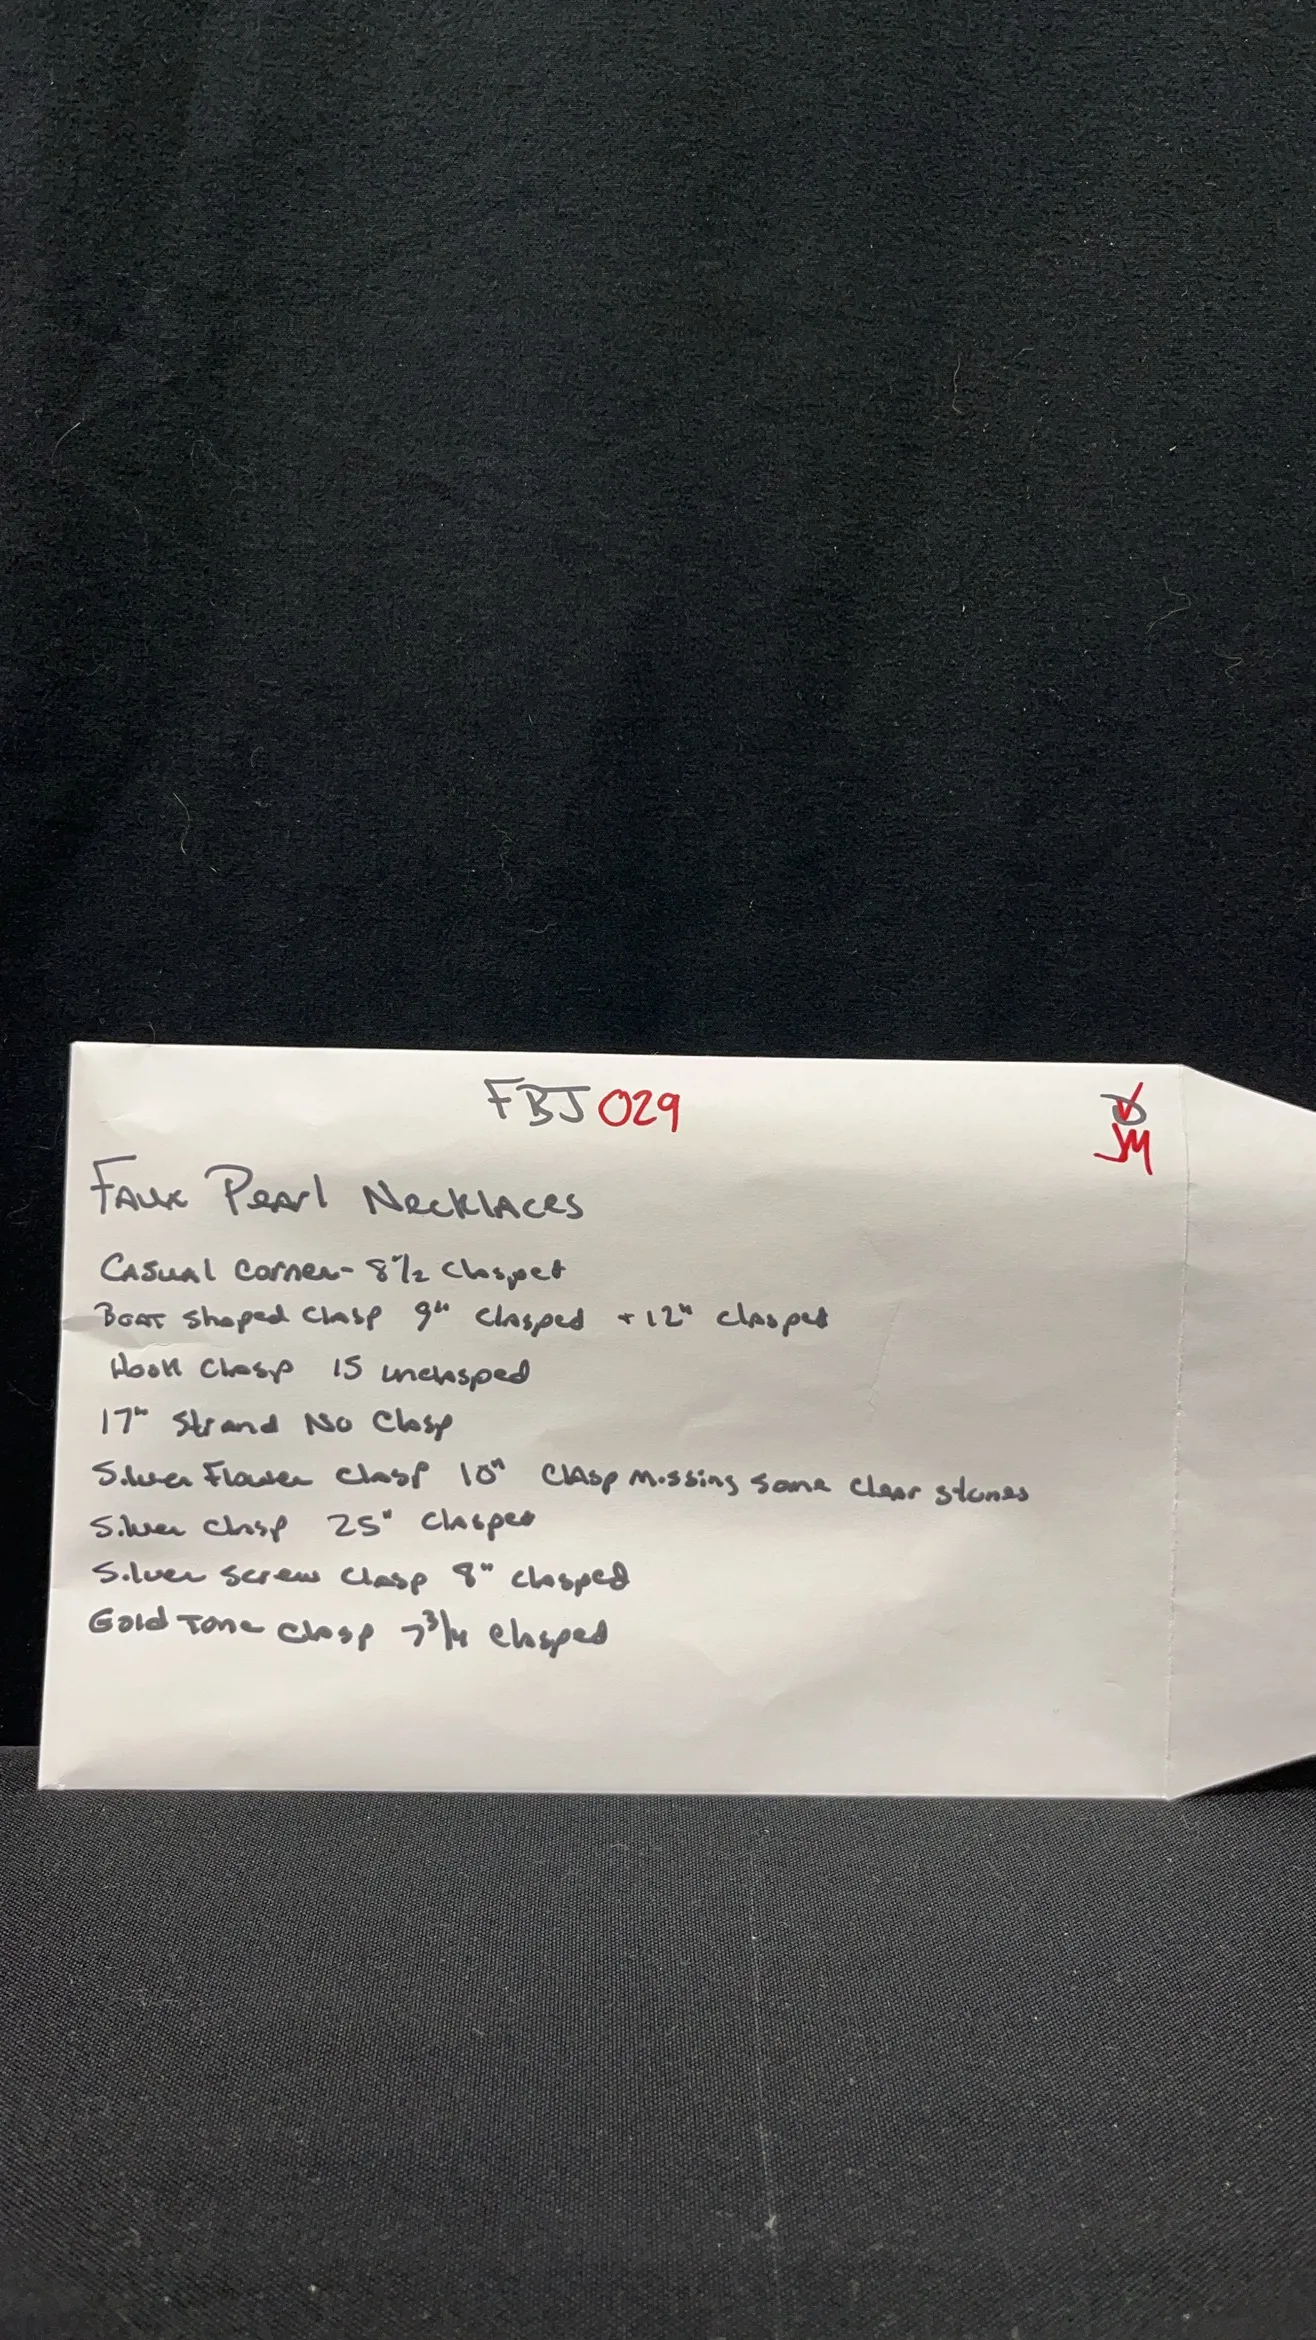 FBJ 029
JM
Faux Pearl Necklaces
Casual Corner - 8 1/2 Clasped
Boat Shaped Clasp 9" Clasped + 12" clasped
Hook Clasp 15 unclasped
17" Strand No Clasp
Silver Flower Clasp 10" Clasp Missing Some Clear Stones
Silver Clasp 25" Clasped
Silver Screw Clasp 8" Clasped
Gold Tone Clasp 7 3/4 Clasped